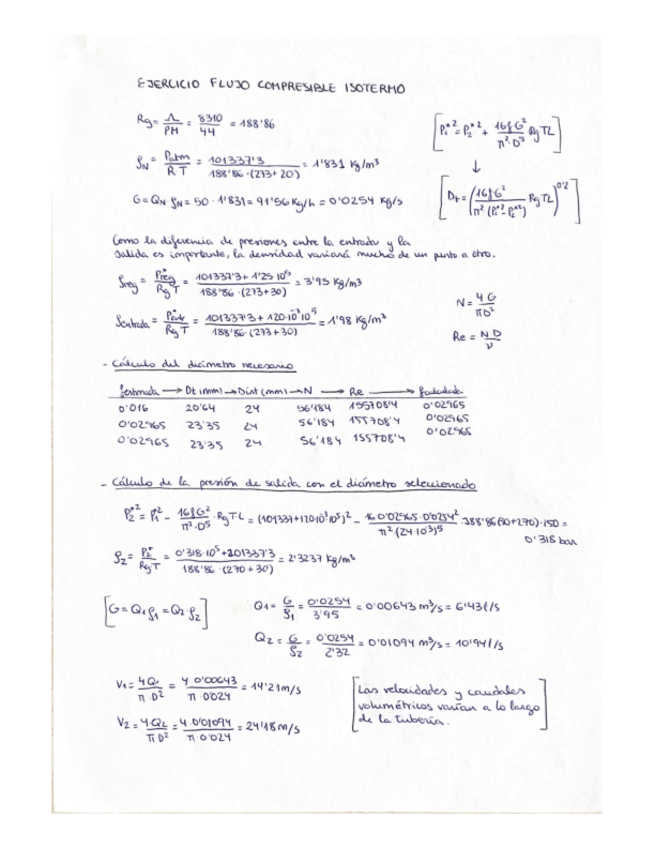 EJERCICIO FLUJO COMPRESIBLE ISOTERMO
Rg = R/PM = 8310/44 = 188'86
[P1*² = P2*² + (16 f G²)/(π² · D⁵) Rg T L]
ρN = Patm/(R T) = 101337'3/(188'86 · (273+20)) = 1'831 Kg/m³
↓
G = QN ρN = 50 · 1'831 = 91'56 Kg/h = 0'0254 Kg/s
[Dt = ((16 f G²)/(π² (P1*² - P2*²)) Rg T L)^0'2]
Como la diferencia de presiones entre la entrada y la
salida es importante, la densidad variará mucho de un punto a otro.
ρreg = P*reg/(Rg T) = (101337'3 + 1'25 10⁵)/(188'86 · (273+30)) = 3'95 Kg/m³
N = 4G/(πD²)
ρentrada = P*entr/(Rg T) = (101337'3 + 120·10⁻³10⁵)/(188'86 · (273+30)) = 1'98 Kg/m³
Re = N D/ν
- Cálculo del diámetro necesario
festimada → Dt (mm) → Dint (mm) → N → Re → fcalculada
0'016 20'64 24 56'184 155708'4 0'02965
0'02965 23'35 24 56'184 155708'4 0'02965
0'02965 23'35 24 56'184 155708'4 0'02965
- Cálculo de la presión de salida con el diámetro seleccionado
P2*² = P1*² - (16 f G²)/(π² · D⁵) · Rg T L = (101337+120·10³10⁵)² - (16 0'02965·0'0254²)/(π² (24·10⁻³)⁵) · 188'86 (30+270) · 150 =
0'318 bar
ρ2 = P2*/(Rg T) = (0'318·10⁵ + 101337'3)/(188'86 · (270+30)) = 2'3237 Kg/m³
[G = Q1 ρ1 = Q2 · ρ2]
Q1 = G/ρ1 = 0'0254/3'95 = 0'00643 m³/s = 6'43 l/s
Q2 = G/ρ2 = 0'0254/2'32 = 0'01094 m³/s = 10'94 l/s
V1 = 4Q1/(π · D²) = 4·0'00643/(π · 0'024) = 14'21 m/s
V2 = 4·Q2/(π D²) = 4·0'01094/(π · 0'024) = 24'18 m/s
[Las velocidades y caudales
volumétricos varían a lo largo
de la tubería.]